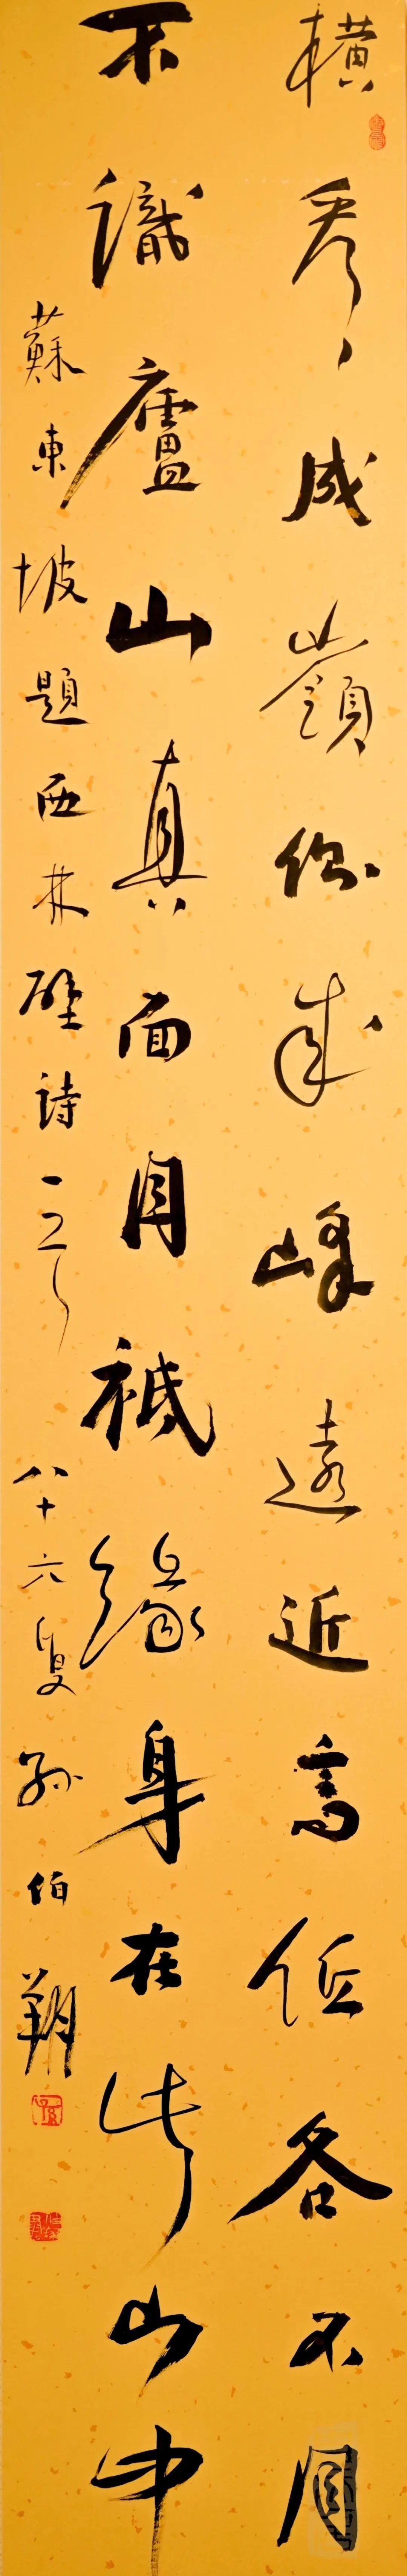 橫看成嶺側成峰遠近高低各不同
不識廬山真面目祗緣身在此山中
蘇東坡題西林壁詩一首 八十六叟 孫伯翔